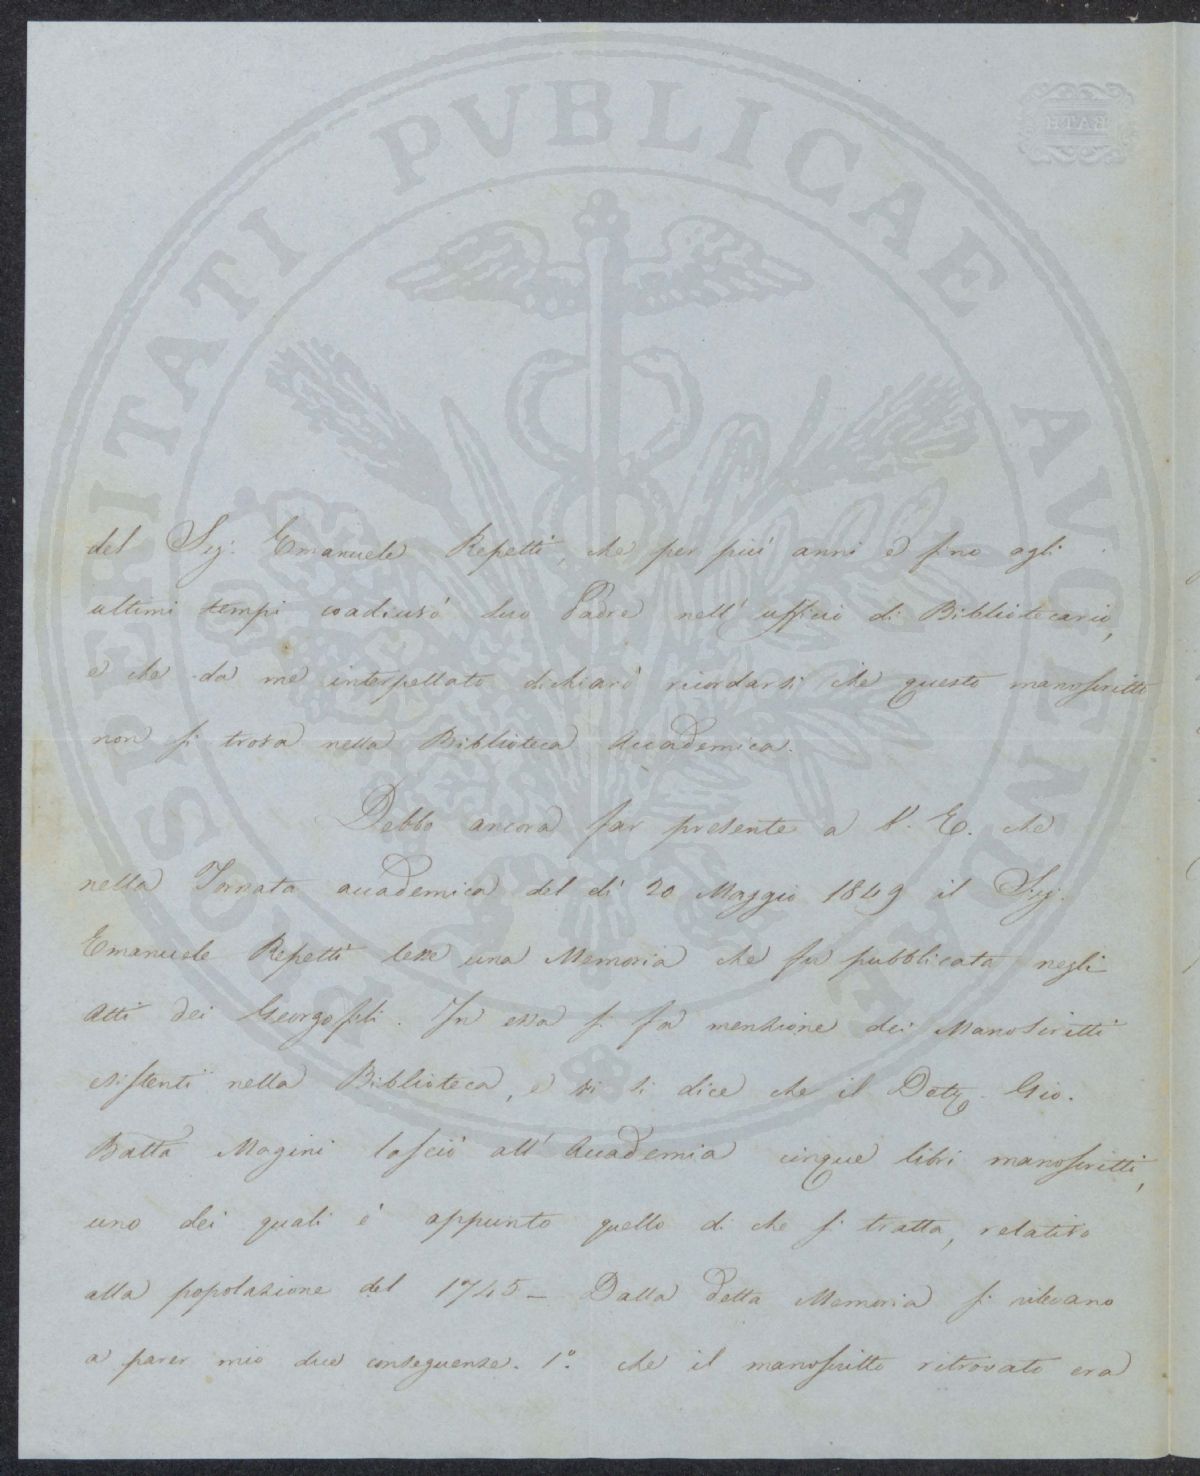 PROSPERITATI PVBLICAE AVGENDAE
BATH
del Sig. Emanuele Repetti, che per più anni e fino agli
ultimi tempi coadiuvò suo Padre nell' ufficio di Bibliotecario,
e che da me interpellato dichiarò ricordarsi che questo manoscritto
non si trova nella Biblioteca Accademica.
Debbo ancora far presente a V. E. che
nella Tornata accademica del dì 20 Maggio 1849 il Sig.
Emanuele Repetti lesse una Memoria che fu pubblicata negli
Atti dei Georgofili. In essa si fa menzione dei Manoscritti
esistenti nella Biblioteca, e vi si dice che il Dott. Gio.
Batta Magini lasciò all' Accademia cinque libri manoscritti,
uno dei quali è appunto quello di che si tratta, relativo
alla popolazione del 1745 – Dalla detta Memoria si rilevano
a parer mio due conseguenze. 1º. che il manoscritto ritrovato era